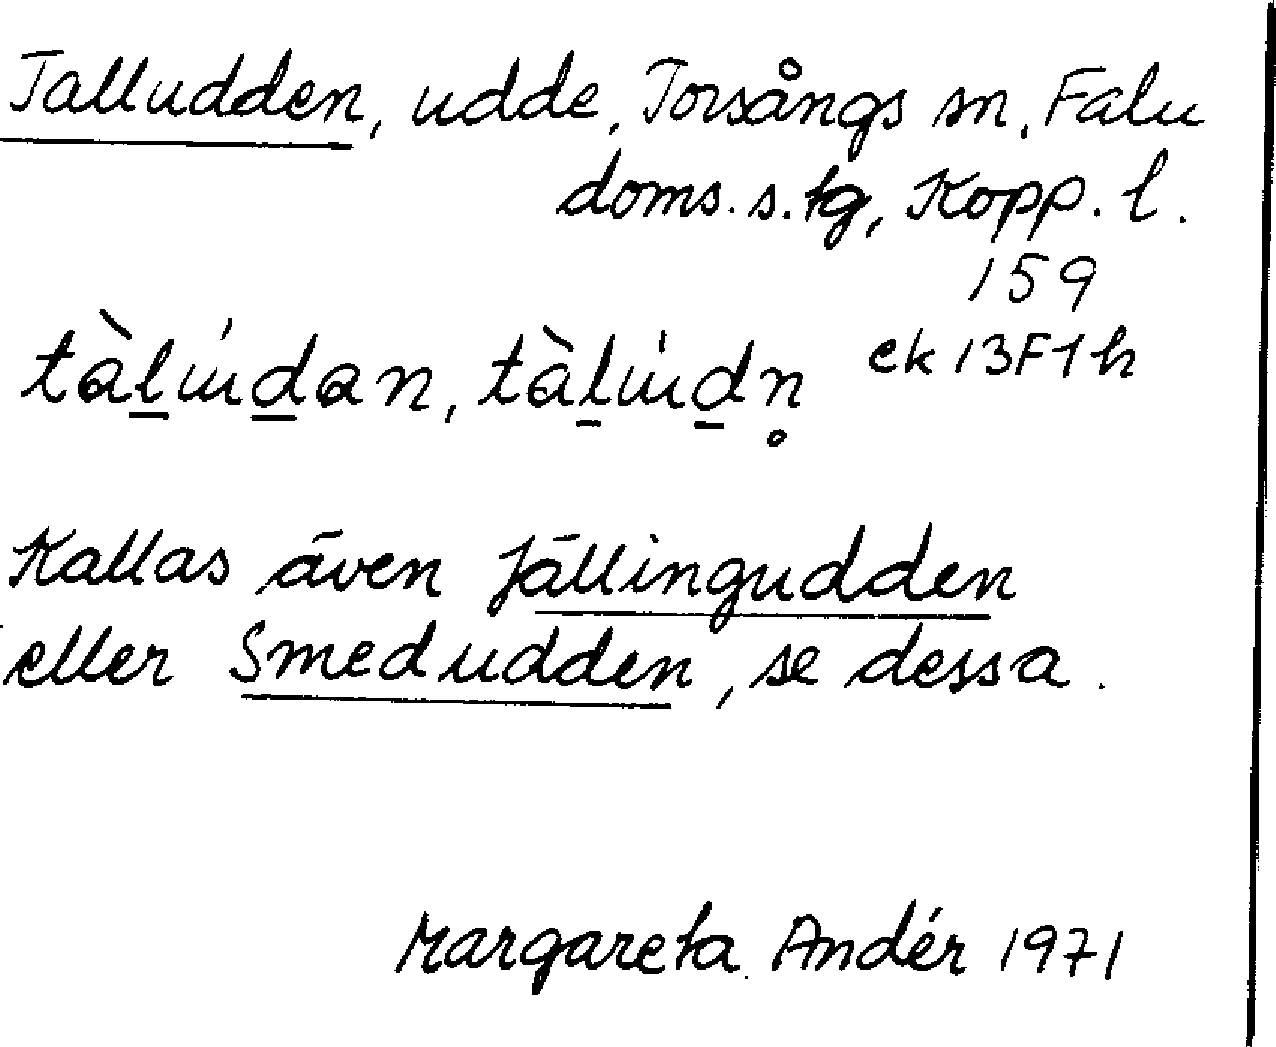 Talludden, udde, Torsångs sn, Falu
doms. s. tg, Kopp. l.
159
tàl̲úd̲an, tàl̲úd̲n̥ ek 13F1h
Kallas även Jällingudden
eller Smedudden, se dessa.
Margareta Andér 1971